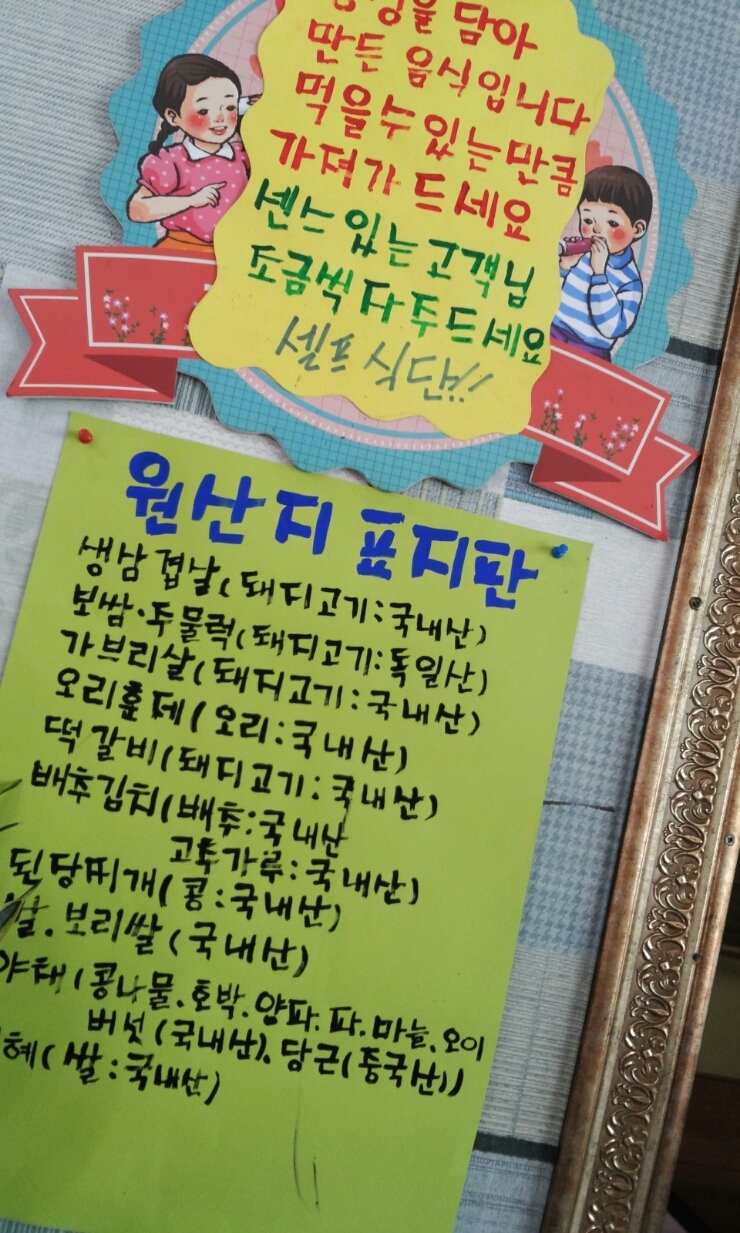 담아
만든 음식입니다
먹을수 있는 만큼
가져가 드세요
센스 있는 고객님
조금씩 다 두드세요
셀프식단!!
원산지 표지판
생삼겹날(돼지고기:국내산)
보쌈.두물럭(돼지고기:독일산)
가브리살(돼지고기:국내산)
오리훈제(오리:국내산)
떡갈비(돼지고기:국내산)
배추김치(배추:국내산
고추가루:국내산)
된당찌개(콩:국내산)
쌀.보리쌀(국내산)
야채(콩나물.호박.양파.파.마늘.오이
버섯(국내산).당근(중국산))
혜(쌀:국내산)